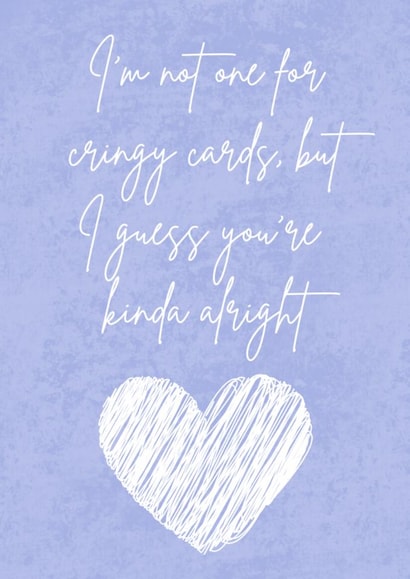 I'm not one for
cringy cards, but
I guess you're
kinda alright